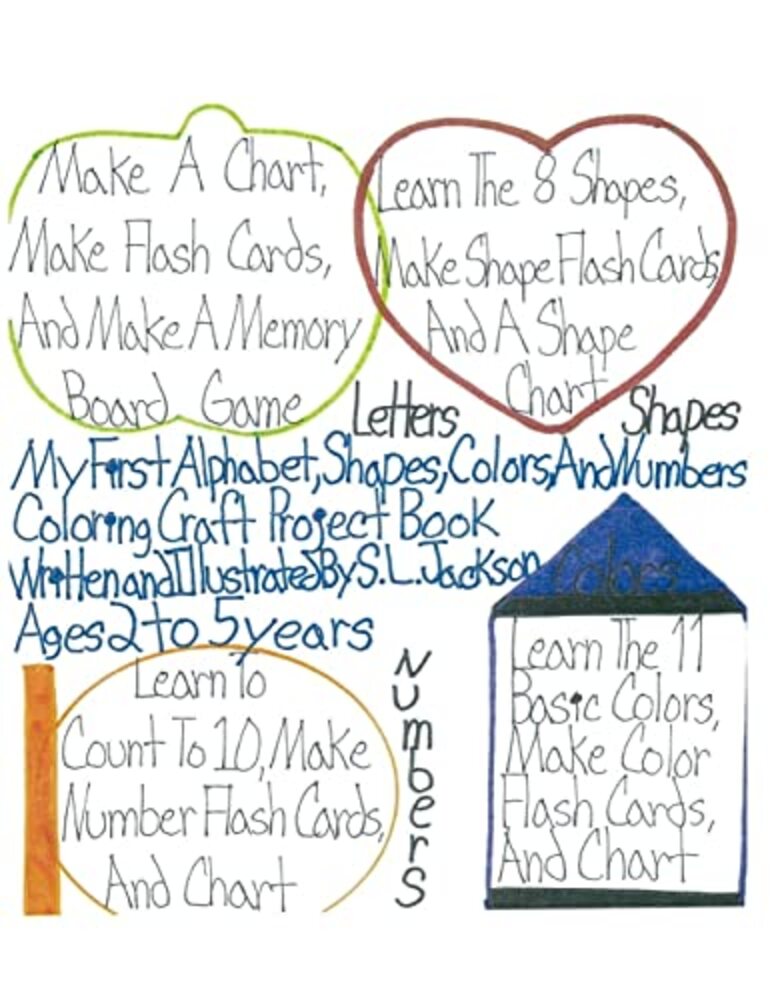 Make A Chart,
Make Flash Cards,
And Make A Memory
Board Game
Letters
Learn The 8 Shapes,
Make Shape Flash Cards,
And A Shape
Chart
Shapes
My First Alphabet, Shapes, Colors, And Numbers
Coloring Craft Project Book
Written and Illustrated By S.L. Jackson
Ages 2 to 5 years
Learn To
Count To 10, Make
Number Flash Cards,
And Chart
Numbers
Colors
Learn The 11
Basic Colors,
Make Color
Flash Cards,
And Chart